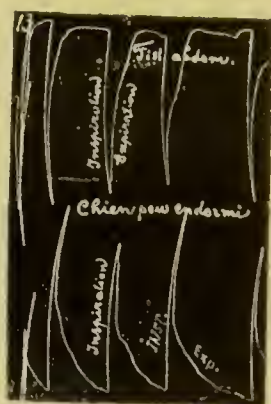 13
Inspiration
Expiration
abdom.
Chien peu endormi
Inspiration
Insp.
Exp.